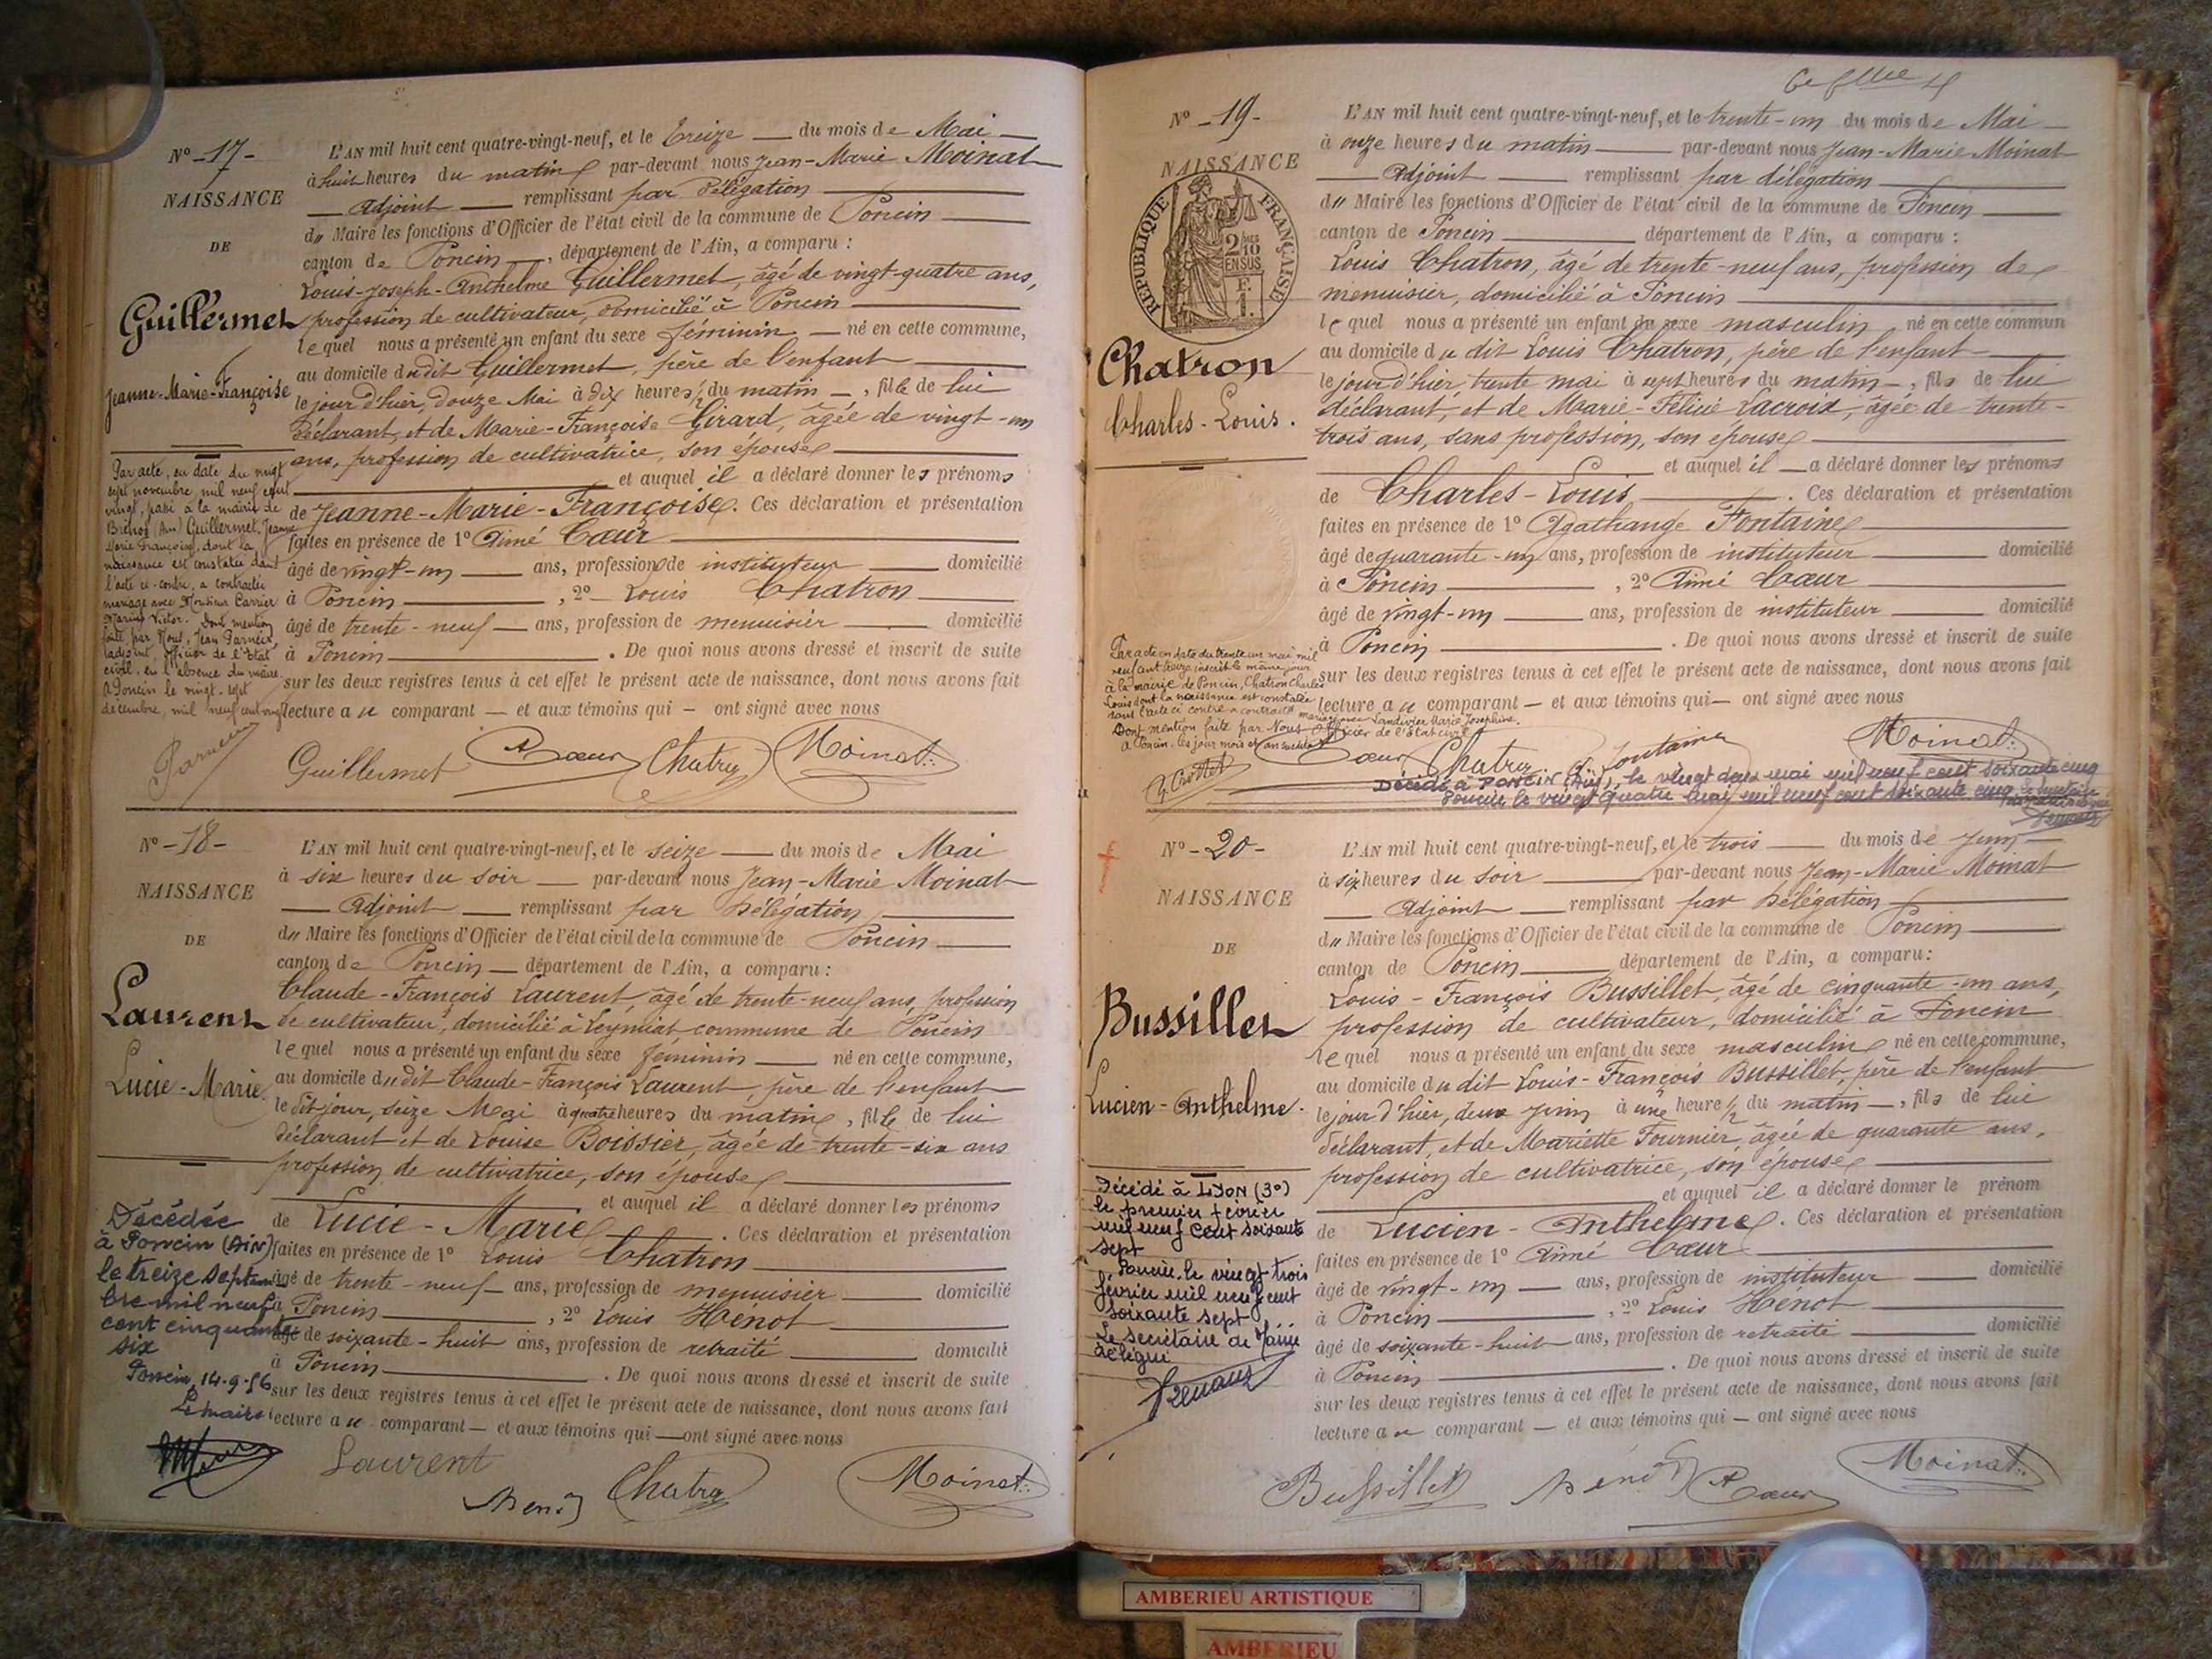 N° -17-
NAISSANCE
DE
Guillermet
Jeanne-Marie-Françoise
L'AN mil huit cent quatre-vingt-neuf, et le treize — du mois de Mai —
à huit heures du matin par-devant nous Jean-Marie Moinat
— Adjoint — remplissant par délégation —
du Maire les fonctions d'Officier de l'état civil de la commune de Poncin —
canton de Poncin —, département de l'Ain, a comparu :
Louis-Joseph-Anthelme Guillermet, âgé de vingt-quatre ans,
profession de cultivateur, domicilié à Poncin —
lequel nous a présenté un enfant du sexe féminin — né en cette commune,
au domicile dudit Guillermet, père de l'enfant —
le jour d'hier, douze Mai à dix heures ½ du matin —, fille de lui
déclarant, et de Marie-Françoise Girard, âgée de vingt-un
ans, profession de cultivatrice, son épouse —
— et auquel il a déclaré donner les prénoms
de Jeanne-Marie-Françoise. Ces déclaration et présentation
faites en présence de 1° Aimé Cœur —
âgé de vingt-un — ans, profession de instituteur — domicilié
à Poncin —, 2° Louis Chatron —
âgé de trente-neuf — ans, profession de menuisier — domicilié
à Poncin —. De quoi nous avons dressé et inscrit de suite
sur les deux registres tenus à cet effet le présent acte de naissance, dont nous avons fait
lecture au comparant — et aux témoins qui — ont signé avec nous
Par acte, en date du vingt
sept novembre, mil neuf cent
vingt, passé à la mairie de
Brénod (Ain) Guillermet, Jeanne
Marie Françoise, dont la
naissance est constatée dans
l'acte ci-contre, a contracté
mariage avec Monsieur Carrier
Marius Victor. Dont mention
faite par Nous, Jean Parneix,
adjoint, officier de l'État
civil, en l'absence du maire.
A Poncin le vingt-sept
décembre, mil neuf cent vingt
Parneix
Guillermet A Cœur Chatron Moinat
N° -18-
NAISSANCE
DE
Laurent
Lucie-Marie
L'AN mil huit cent quatre-vingt-neuf, et le seize — du mois de Mai
à six heures du soir — par-devant nous Jean-Marie Moinat
— Adjoint — remplissant par délégation —
du Maire les fonctions d'Officier de l'état civil de la commune de Poncin —
canton de Poncin — département de l'Ain, a comparu :
Claude-François Laurent, âgé de trente-neuf ans, profession
de cultivateur, domicilié à Leymiat commune de Poncin
lequel nous a présenté un enfant du sexe féminin — né en cette commune,
au domicile dudit Claude-François Laurent, père de l'enfant
le dit jour, seize Mai à quatre heures du matin, fille de lui
déclarant et de Louise Boissier, âgée de trente-six ans
profession de cultivatrice, son épouse —
— et auquel il a déclaré donner les prénoms
de Lucie-Marie —. Ces déclaration et présentation
faites en présence de 1° Louis Chatron —
âgé de trente-neuf — ans, profession de menuisier — domicilié
à Poncin —, 2° Louis Hénot —
âgé de soixante-huit ans, profession de retraité — domicilié
à Poncin —. De quoi nous avons dressé et inscrit de suite
sur les deux registres tenus à cet effet le présent acte de naissance, dont nous avons fait
lecture au comparant — et aux témoins qui — ont signé avec nous
Décédée
à Poncin (Ain)
le treize septem
bre mil neuf
cent cinquante
six
Poncin, 14-9-56
Le maire
Laurent Henot Chatron Moinat
6e flle
N° -19-
NAISSANCE
REPUBLIQUE FRANÇAISE
2/10
EN SUS
F.
1.
Chatron
Charles-Louis.
L'AN mil huit cent quatre-vingt-neuf, et le trente-un du mois de Mai —
à onze heures du matin — par-devant nous Jean-Marie Moinat
— Adjoint — remplissant par délégation —
du Maire les fonctions d'Officier de l'état civil de la commune de Poncin —
canton de Poncin — département de l'Ain, a comparu :
Louis Chatron, âgé de trente-neuf ans, profession de
menuisier, domicilié à Poncin —
lequel nous a présenté un enfant du sexe masculin né en cette commun
au domicile du dit Louis Chatron, père de l'enfant —
le jour d'hier, trente mai à sept heures du matin —, fils de lui
déclarant, et de Marie-Félicie Lacroix, âgée de trente-
trois ans, sans profession, son épouse —
— et auquel il — a déclaré donner les prénoms
de Charles-Louis, —. Ces déclaration et présentation
faites en présence de 1° Agathange Fontaine —
âgé de quarante-un ans, profession de instituteur — domicilié
à Poncin —, 2° Aimé Cœur —
âgé de vingt-un — ans, profession de instituteur — domicilié
à Poncin —. De quoi nous avons dressé et inscrit de suite
sur les deux registres tenus à cet effet le présent acte de naissance, dont nous avons fait
lecture au comparant — et aux témoins qui — ont signé avec nous
Par acte en date du trente un mai mil
neuf cent treize inscrit le même jour
à la mairie de Poncin, Chatron Charles
Louis dont la naissance est constatée
dans l'acte ci contre a contracté mariage avec Landivier Marie Joséphine.
Dont mention faite par Nous Officier de l'état civil
A Poncin, les jour mois et an susdits
A Cœur Chatron A. Fontaine Moinat
Décédé à PONCIN (Ain), le vingt deux mai mil neuf cent soixante cinq
Poncin le vingt quatre mai mil neuf cent soixante cinq
N° -20-
NAISSANCE
DE
Bussillet
Lucien-Anthelme.
L'AN mil huit cent quatre-vingt-neuf, et le trois — du mois de Juin —
à six heures du soir — par-devant nous Jean-Marie Moinat
— Adjoint — remplissant par délégation —
du Maire les fonctions d'Officier de l'état civil de la commune de Poncin —
canton de Poncin — département de l'Ain, a comparu :
Louis-François Bussillet, âgé de cinquante-un ans,
profession de cultivateur, domicilié à Poncin
lequel nous a présenté un enfant du sexe masculin né en cette commune,
au domicile du dit Louis-François Bussillet, père de l'enfant
le jour d'hier, deux Juin à une heure ½ du matin —, fils de lui
déclarant, et de Mariette Fournier, âgée de quarante ans,
profession de cultivatrice, son épouse —
— et auquel il a déclaré donner le prénom
de Lucien-Anthelme. Ces déclaration et présentation
faites en présence de 1° Aimé Cœur —
âgé de vingt-un — ans, profession de instituteur — domicilié
à Poncin —, 2° Louis Hénot —
âgé de soixante-huit ans, profession de retraité — domicilié
à Poncin —. De quoi nous avons dressé et inscrit de suite
sur les deux registres tenus à cet effet le présent acte de naissance, dont nous avons fait
lecture au comparant — et aux témoins qui — ont signé avec nous
Décédé à LYON (3°)
le premier février
mil neuf cent soixante
sept
Poncin, le vingt trois
février mil neuf cent
soixante sept
Le secrétaire de Mairie
délégué
Bussillet Hénot A Cœur Moinat
AMBERIEU ARTISTIQUE
AMBERIEU